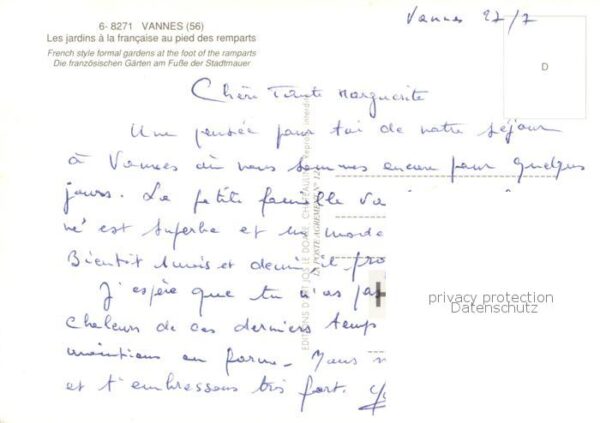 6- 8271 VANNES (56)
Les jardins à la française au pied des remparts
French style formal gardens at the foot of the ramparts
Die französischen Gärten am Fuße der Stadtmauer
Vannes 27/7
D
Chère Tante Marguerite
Une pensée pour toi de notre séjour
à Vannes où nous sommes encore pour quelques
jours. La petite famille va
né est superbe et un
Bientôt 2 mois et demi, il pro
J'espère que tu n'as pas
chaleurs de ces derniers temps
maintiens en forme. Nous
et t'embrassons très fort.
EDITIONS D'ART JOS LE DOARÉ, CHATEAULIN
Reprod. interdite
LA POSTE AGREMENT N°
privacy protection
Datenschutz